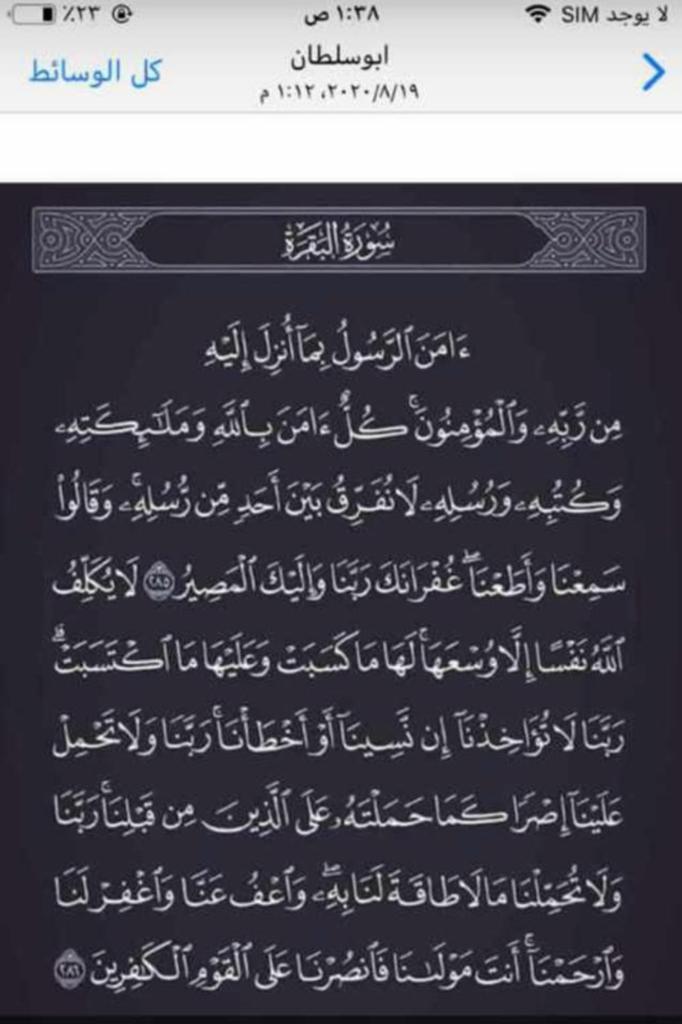 لا يوجد SIM ١:٣٨ ص ٪٢٣
ابوسلطان
كل الوسائط
٢٠٢٠/٨/١٩، ١:١٢ م
سُورَةُ البَقَرَةِ
ءَامَنَ ٱلرَّسُولُ بِمَآ أُنزِلَ إِلَيْهِ
مِن رَّبِّهِۦ وَٱلْمُؤْمِنُونَ ۚ كُلٌّ ءَامَنَ بِٱللَّهِ وَمَلَـٰٓئِكَتِهِۦ
وَكُتُبِهِۦ وَرُسُلِهِۦ لَا نُفَرِّقُ بَيْنَ أَحَدٍ مِّن رُّسُلِهِۦ ۚ وَقَالُوا۟
سَمِعْنَا وَأَطَعْنَا ۖ غُفْرَانَكَ رَبَّنَا وَإِلَيْكَ ٱلْمَصِيرُ ٢٨٥ لَا يُكَلِّفُ
ٱللَّهُ نَفْسًا إِلَّا وُسْعَهَا ۚ لَهَا مَا كَسَبَتْ وَعَلَيْهَا مَا ٱكْتَسَبَتْ ۗ
رَبَّنَا لَا تُؤَاخِذْنَآ إِن نَّسِينَآ أَوْ أَخْطَأْنَا ۚ رَبَّنَا وَلَا تَحْمِلْ
عَلَيْنَآ إِصْرًا كَمَا حَمَلْتَهُۥ عَلَى ٱلَّذِينَ مِن قَبْلِنَا ۚ رَبَّنَا
وَلَا تُحَمِّلْنَا مَا لَا طَاقَةَ لَنَا بِهِۦ ۖ وَٱعْفُ عَنَّا وَٱغْفِرْ لَنَا
وَٱرْحَمْنَآ ۚ أَنتَ مَوْلَىٰنَا فَٱنصُرْنَا عَلَى ٱلْقَوْمِ ٱلْكَـٰفِرِينَ ٢٨٦